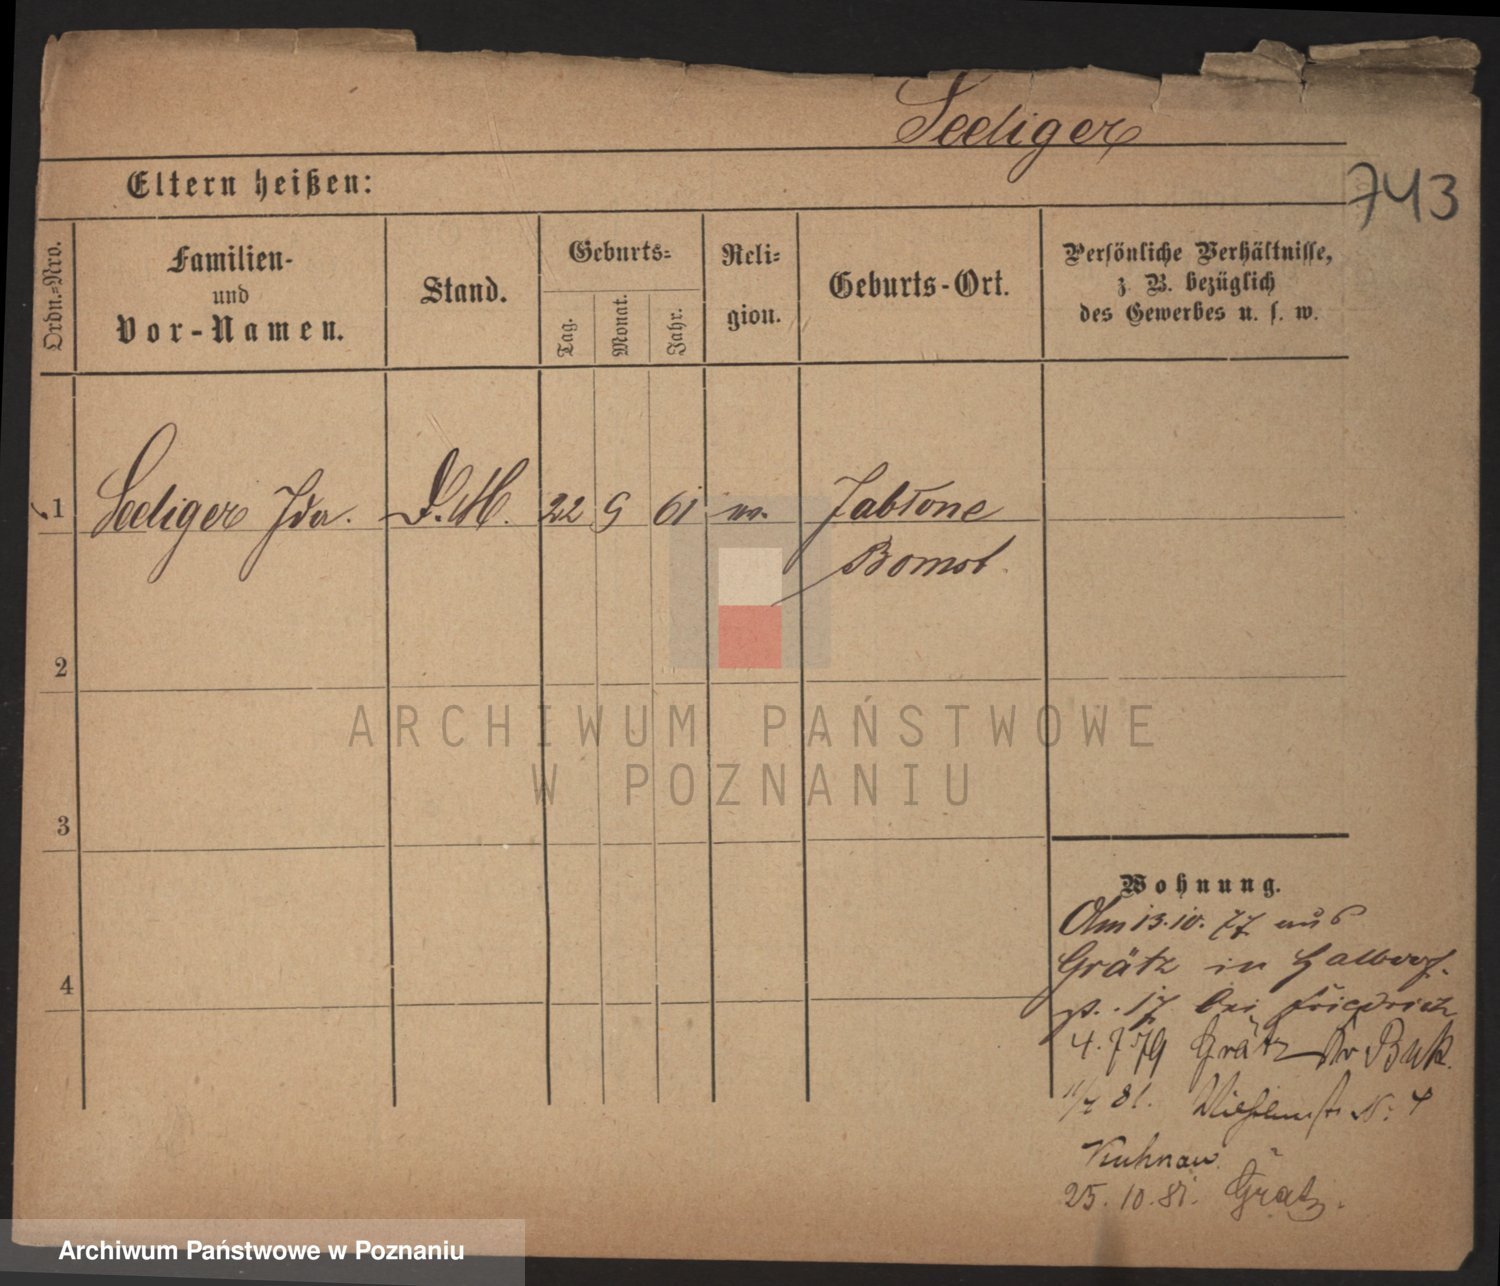 Seediger
743
Eltern heißen:
Ordn.=Nro.
Familien-
und
Vor-Namen.
Stand.
Geburts=
Tag.
Monat.
Jahr.
Reli=
gion.
Geburts-Ort.
Persönliche Verhältnisse,
z. B. bezüglich
des Gewerbes u. s. w.
1 Seediger Ida. D.M. 22 9 61 Jabłone
Bomst.
2
3
4
ARCHIWUM PAŃSTWOWE
W POZNANIU
Wohnung.
Am 13.10.77 aus
Grätz in Halbdorf-
st. 17 bei Friedrich
4.7 79 Grätz Kr Buk.
11/7 81. Wilhelmstr N: 4
Kuhnau.
25.10.81. Grätz.
Archiwum Państwowe w Poznaniu